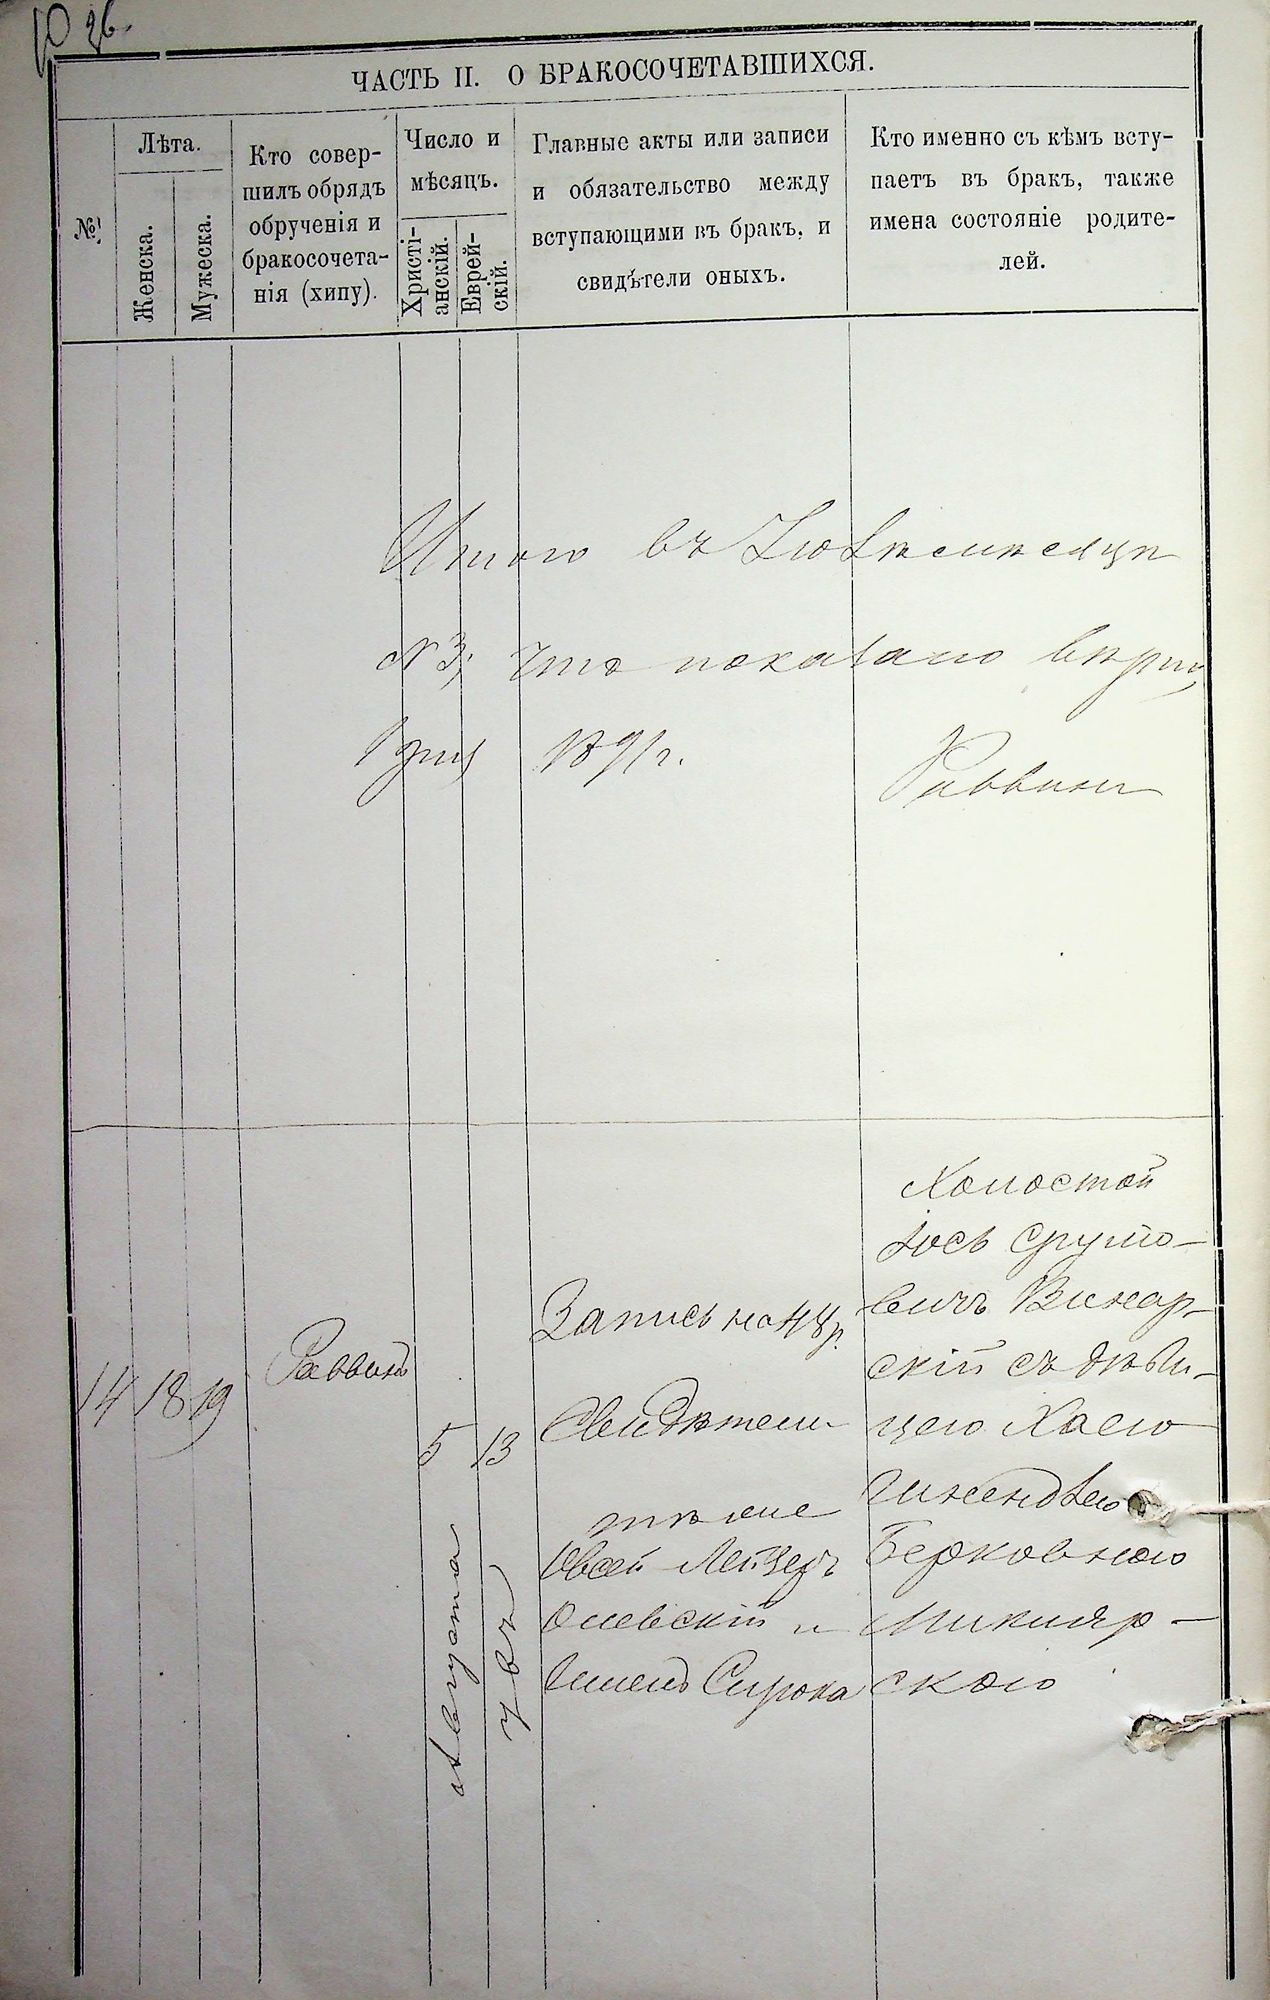 ЧАСТЬ II. О БРАКОСОЧЕТАВШИХСЯ.
№
Лѣта.
Женска.
Мужеска.
Кто совер-
шилъ обрядъ
обрученія и
бракосочета-
нія (хипу).
Число и
мѣсяцъ.
Христі-
анскій.
Еврей-
скій.
Главные акты или записи
и обязательство между
вступающими въ бракъ, и
свидѣтели оныхъ.
Кто именно съ кѣмъ всту-
паетъ въ бракъ, также
имена состояніе родите-
лей.
Итого въ Іюлѣ мѣсяцѣ
№ 3, что показано вѣрно,
1891 г.
Раввинъ
14
18
19
Раввинъ
5
августа
13
Запись на 48 р.
Свидѣтели
тѣже
Овсей Лейзеръ
Олевскій и
Сирота
Холостой
Іось Сруло-
вичъ Винар-
скій съ дѣви-
цею Хаею
Гинендлею
Берковною
ского